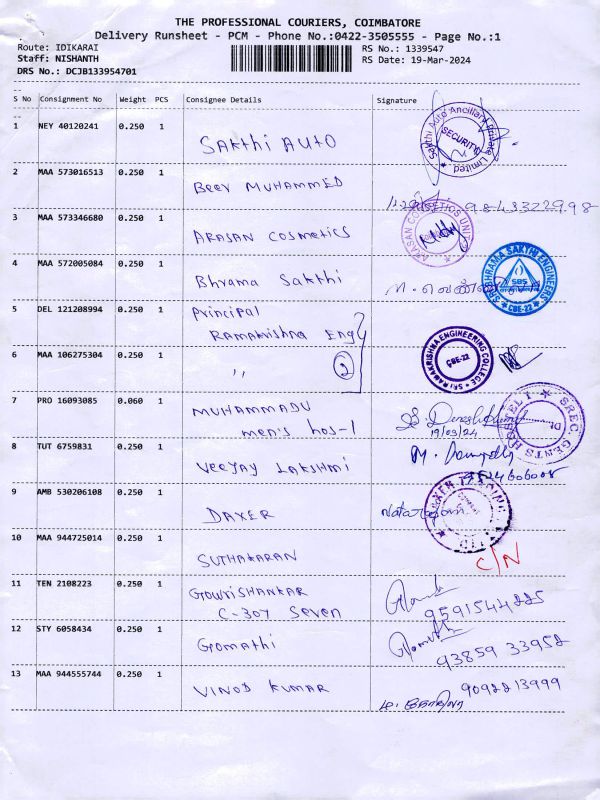 THE PROFESSIONAL COURIERS, COIMBATORE
Delivery Runsheet - PCM - Phone No.:0422-3505555 - Page No.:1
Route: IDIKARAI
RS No.: 1339547
Staff: NISHANTH
RS Date: 19-Mar-2024
DRS No.: DCJB133954701
S No Consignment No Weight PCS Consignee Details Signature
1 NEY 40120241 0.250 1 SAKTHI AUTO
Sakthi Auto Ancillary Private Limited SECURITY
2 MAA 573016513 0.250 1 Beer MUHAMMED
9843322998
3 MAA 573346680 0.250 1 ARASAN COSMETICS
ARASAN COSMETICS UNIT
4 MAA 572005084 0.250 1 Bhrama Sakthi
SRI BHRAMA SAKTHI ENGINEERS SBS CBE-22
5 DEL 121208994 0.250 1 Principal
Ramakrishna Eng
SRI RAMAKRISHNA ENGINEERING COLLEGE CBE-22
6 MAA 106275304 0.250 1 ,, 2
7 PRO 16093085 0.060 1 MUHAMMADU
men's hos-1
19/03/24
SREC. GENTS HOSTEL I
8 TUT 6759831 0.250 1 Veejay Lakshmi
9 AMB 530206108 0.250 1 DAXER
Natarajan
10 MAA 944725014 0.250 1 SUTHAKARAN
C/N
11 TEN 2108223 0.250 1 GOWRISHANKAR
C-307 Seven
9591544225
12 STY 6058434 0.250 1 Gomathi
Gomathi
93859 33952
13 MAA 944555744 0.250 1 VINOD KUMAR
9092213999